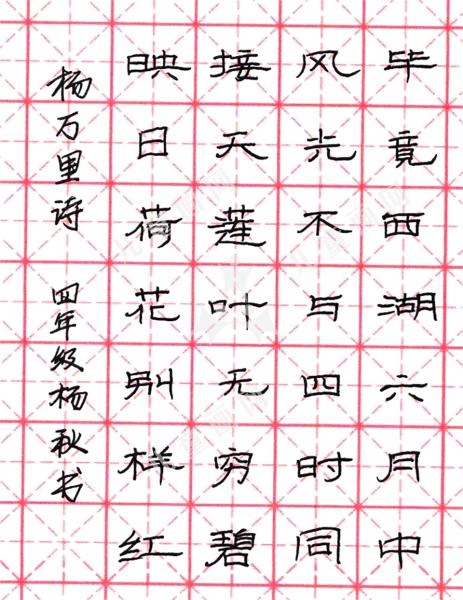 毕竟西湖六月中
风光不与四时同
接天莲叶无穷碧
映日荷花别样红
杨万里诗 四年级杨秋书